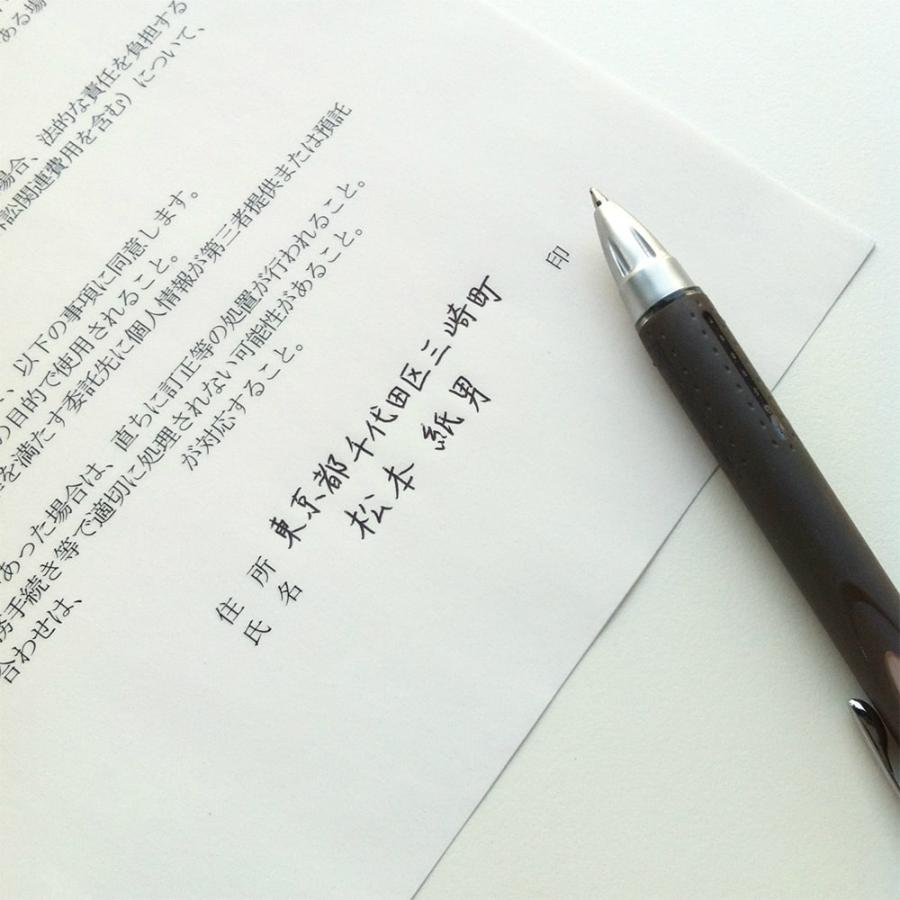 ある場
場合、法的な責任を負担する
訟関連費用を含む）について、
、以下の事項に同意します。
の目的で使用されること。
を満たす委託先に個人情報が第三者提供または預託
あった場合は、直ちに訂正等の処置が行われること。
務手続き等で適切に処理されない可能性があること。
合わせは、
が対応すること。
住 所 東京都千代田区三崎町
氏 名 松本 紙男
印